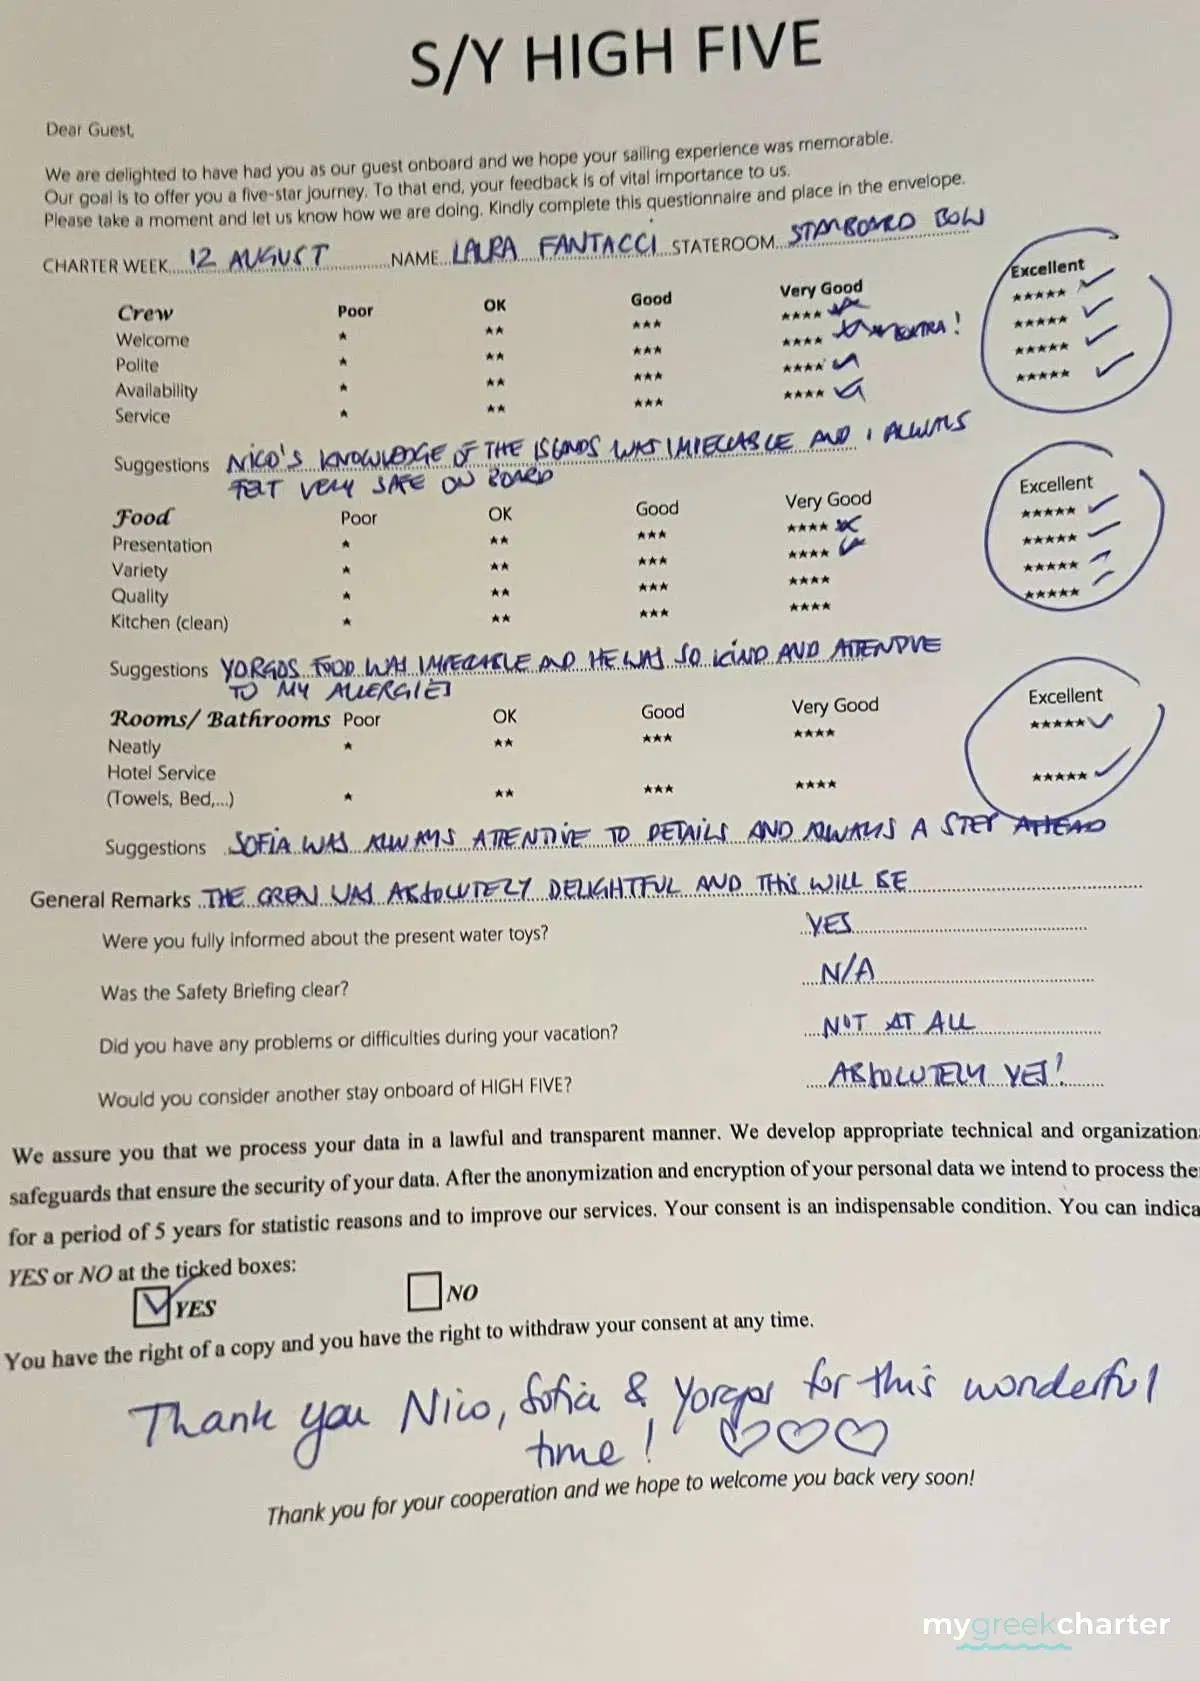 S/Y HIGH FIVE
Dear Guest,
We are delighted to have had you as our guest onboard and we hope your sailing experience was memorable.
Our goal is to offer you a five-star journey. To that end, your feedback is of vital importance to us.
Please take a moment and let us know how we are doing. Kindly complete this questionnaire and place in the envelope.
CHARTER WEEK 12 AUGUST NAME LAURA FANTACCI STATEROOM STARBOARD BOW
Crew Poor OK Good Very Good Excellent
Welcome ★ ★★ ★★★ ★★★★ ★★★★★ ✓
Polite ★ ★★ ★★★ ★★★★ EXTRA! ★★★★★ ✓
Availability ★ ★★ ★★★ ★★★★ ★★★★★ ✓
Service ★ ★★ ★★★ ★★★★ ★★★★★ ✓
Suggestions NICO'S KNOWLEDGE OF THE ISLANDS WAS IMPECCABLE AND I ALWAYS
FELT VERY SAFE ON BOARD
Food Poor OK Good Very Good Excellent
Presentation ★ ★★ ★★★ ★★★★ ★★★★★ ✓
Variety ★ ★★ ★★★ ★★★★ ★★★★★ ✓
Quality ★ ★★ ★★★ ★★★★ ★★★★★ ✓
Kitchen (clean) ★ ★★ ★★★ ★★★★ ★★★★★ ✓
Suggestions YORGOS FOOD WAS IMPECCABLE AND HE WAS SO KIND AND ATTENTIVE
TO MY ALLERGIES
Rooms/ Bathrooms Poor OK Good Very Good Excellent
Neatly ★ ★★ ★★★ ★★★★ ★★★★★ ✓
Hotel Service
(Towels, Bed,...) ★ ★★ ★★★ ★★★★ ★★★★★ ✓
Suggestions SOFIA WAS ALWAYS ATTENTIVE TO DETAILS AND ALWAYS A STEP AHEAD
General Remarks THE CREW WAS ABSOLUTELY DELIGHTFUL AND THIS WILL BE
Were you fully informed about the present water toys? YES
Was the Safety Briefing clear? N/A
Did you have any problems or difficulties during your vacation? NOT AT ALL
Would you consider another stay onboard of HIGH FIVE? ABSOLUTELY YES!
We assure you that we process your data in a lawful and transparent manner. We develop appropriate technical and organization
safeguards that ensure the security of your data. After the anonymization and encryption of your personal data we intend to process the
for a period of 5 years for statistic reasons and to improve our services. Your consent is an indispensable condition. You can indica
YES or NO at the ticked boxes:
YES NO
You have the right of a copy and you have the right to withdraw your consent at any time.
Thank you Nico, Sofia & Yorgos for this wonderful
time! ♡♡♡
Thank you for your cooperation and we hope to welcome you back very soon!
mygreekcharter